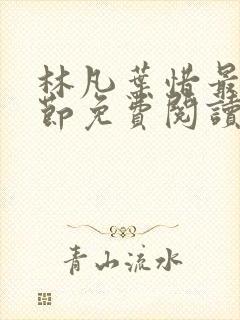 林凡葉惜最
節免費閱讀
青山流水